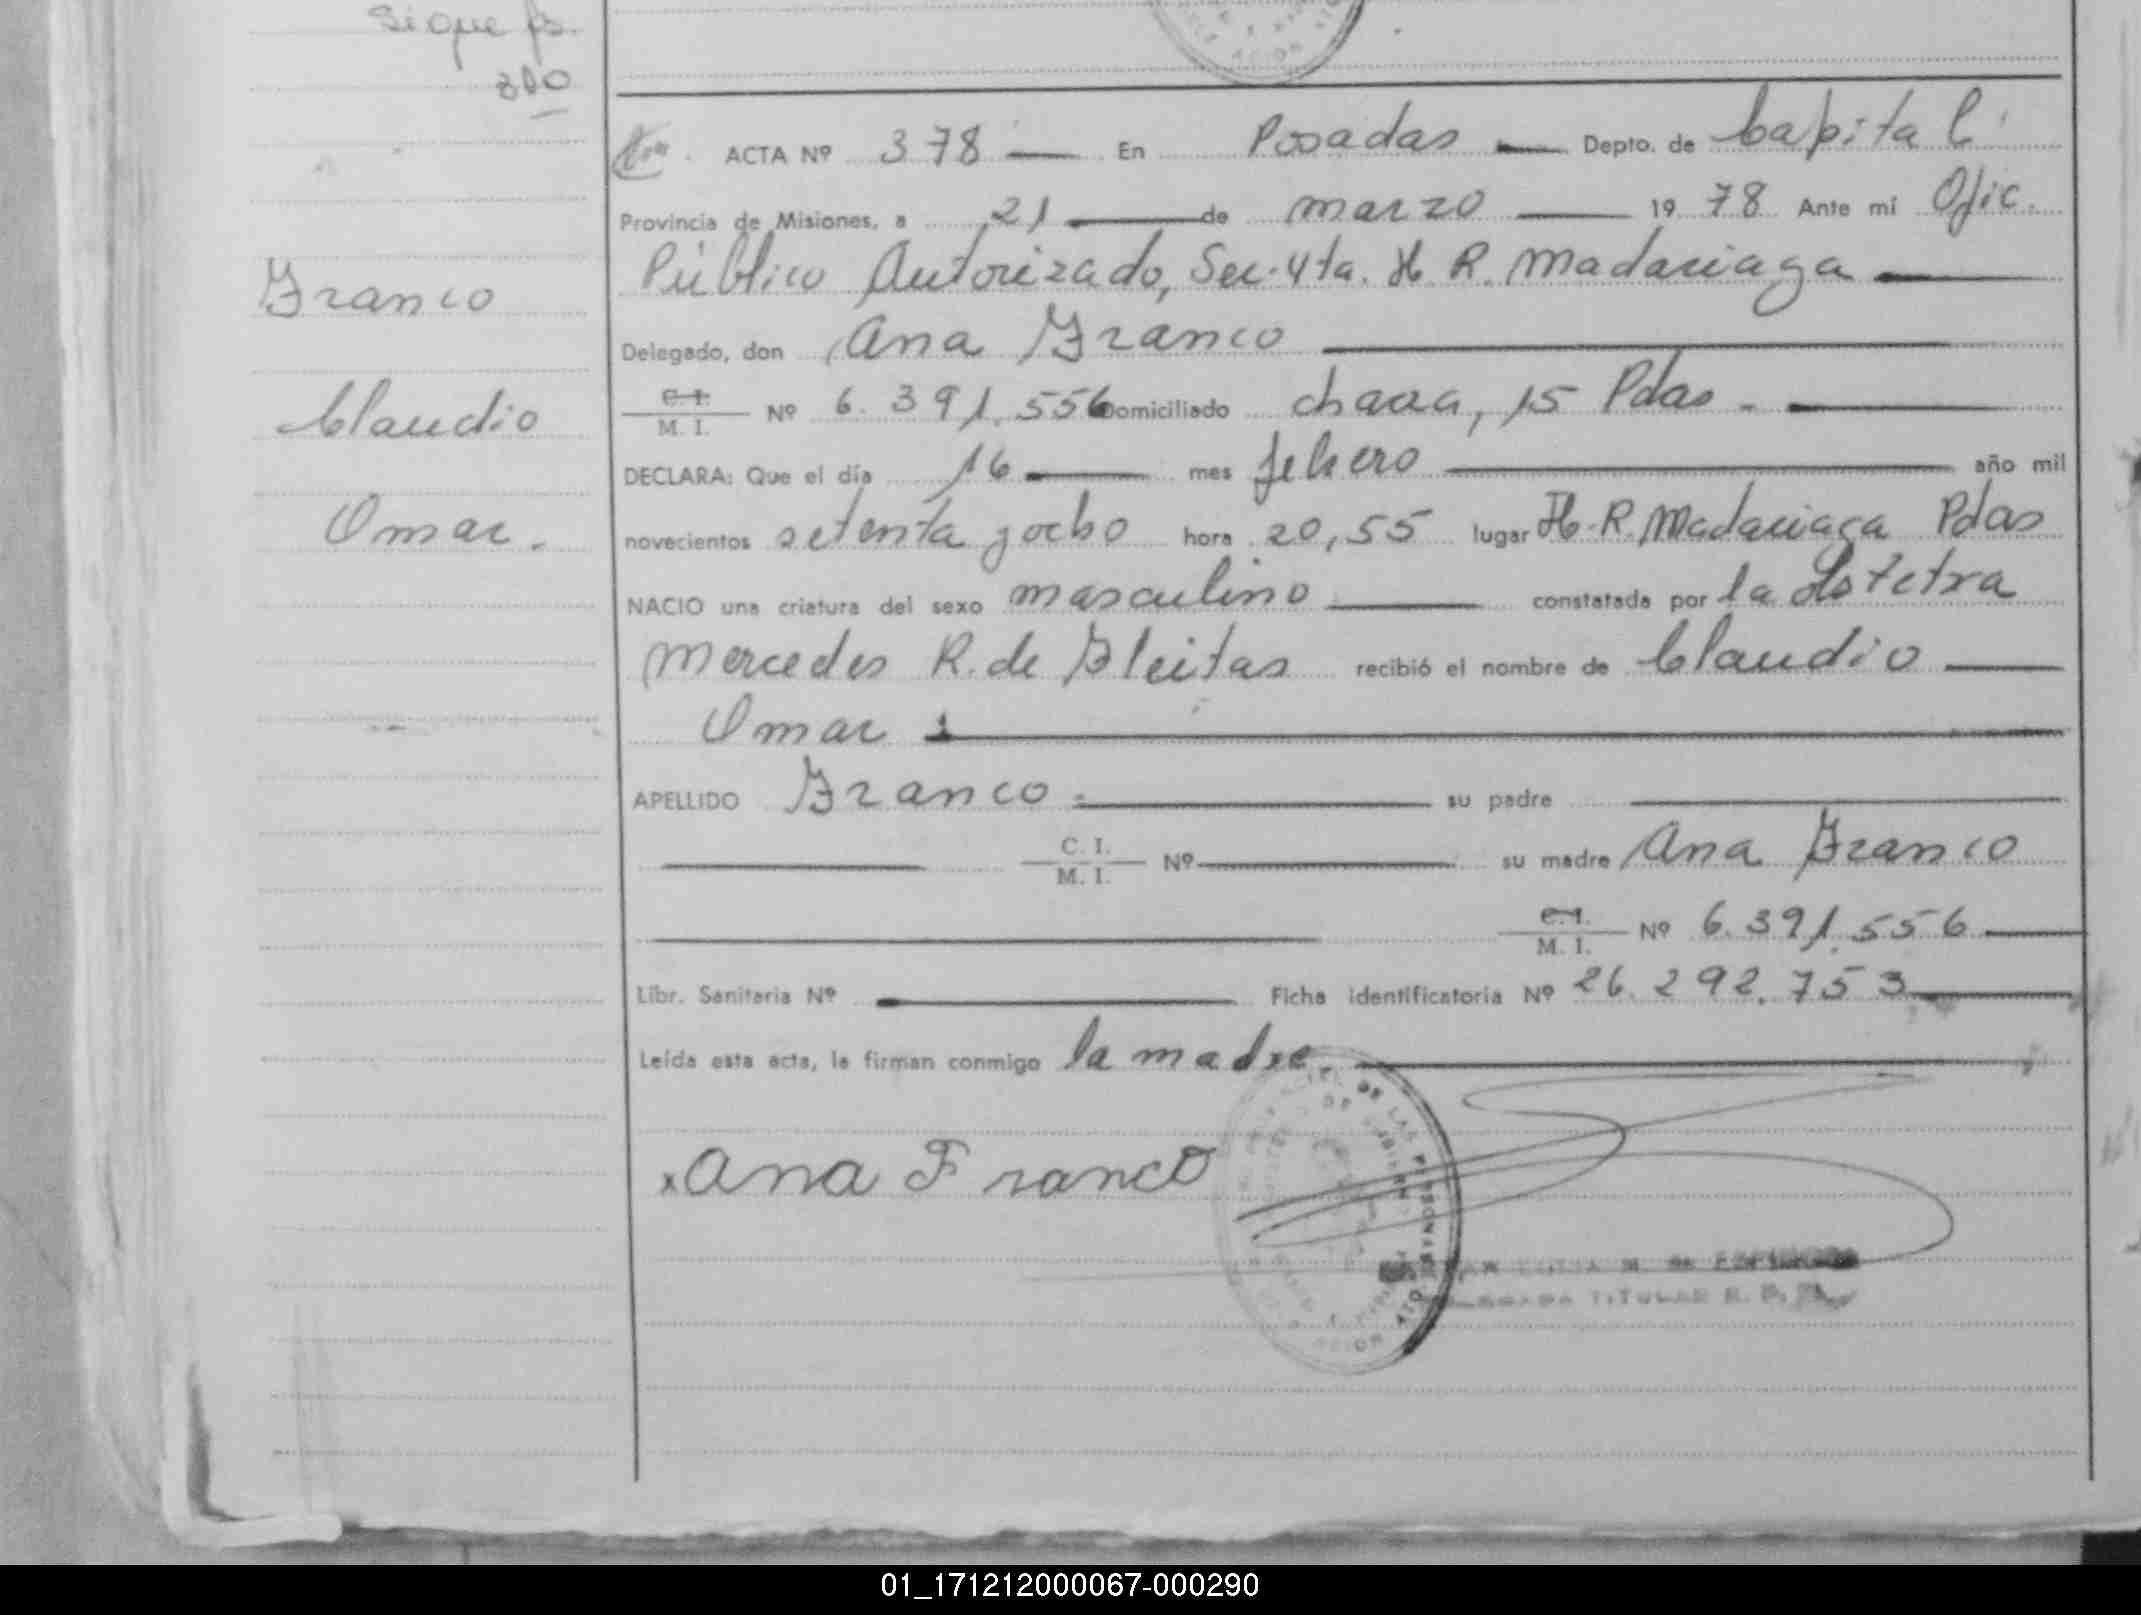 Sigue fs.
380
ACTA Nº 378 — En Posadas — Depto. de Capital
Provincia de Misiones, a 21 — de marzo — 1978 Ante mí Ofic.
Público Autorizado, Sec. 4ta. H. R. Madariaga —
Franco
Delegado, don Ana Franco —
C. I.
M. I. Nº 6.391.556 Domiciliado chacra, 15 Pdas. —
Claudio
DECLARA: Que el día 16 — mes febrero — año mil
Omar.
novecientos setenta y ocho hora 20,55 lugar H. R. Madariaga Pdas
NACIO una criatura del sexo masculino — constatada por la Obstetra
Mercedes R. de Bleitas recibió el nombre de Claudio —
Omar —
APELLIDO Franco — su padre —
— C. I.
M. I. Nº — su madre Ana Franco
— C. I.
M. I. Nº 6.391.556 —
Libr. Sanitaria Nº — Ficha identificatoria Nº 26.292.753 —
Leída esta acta, la firman conmigo la madre. —
x Ana Franco
TITULAR
01_171212000067-000290